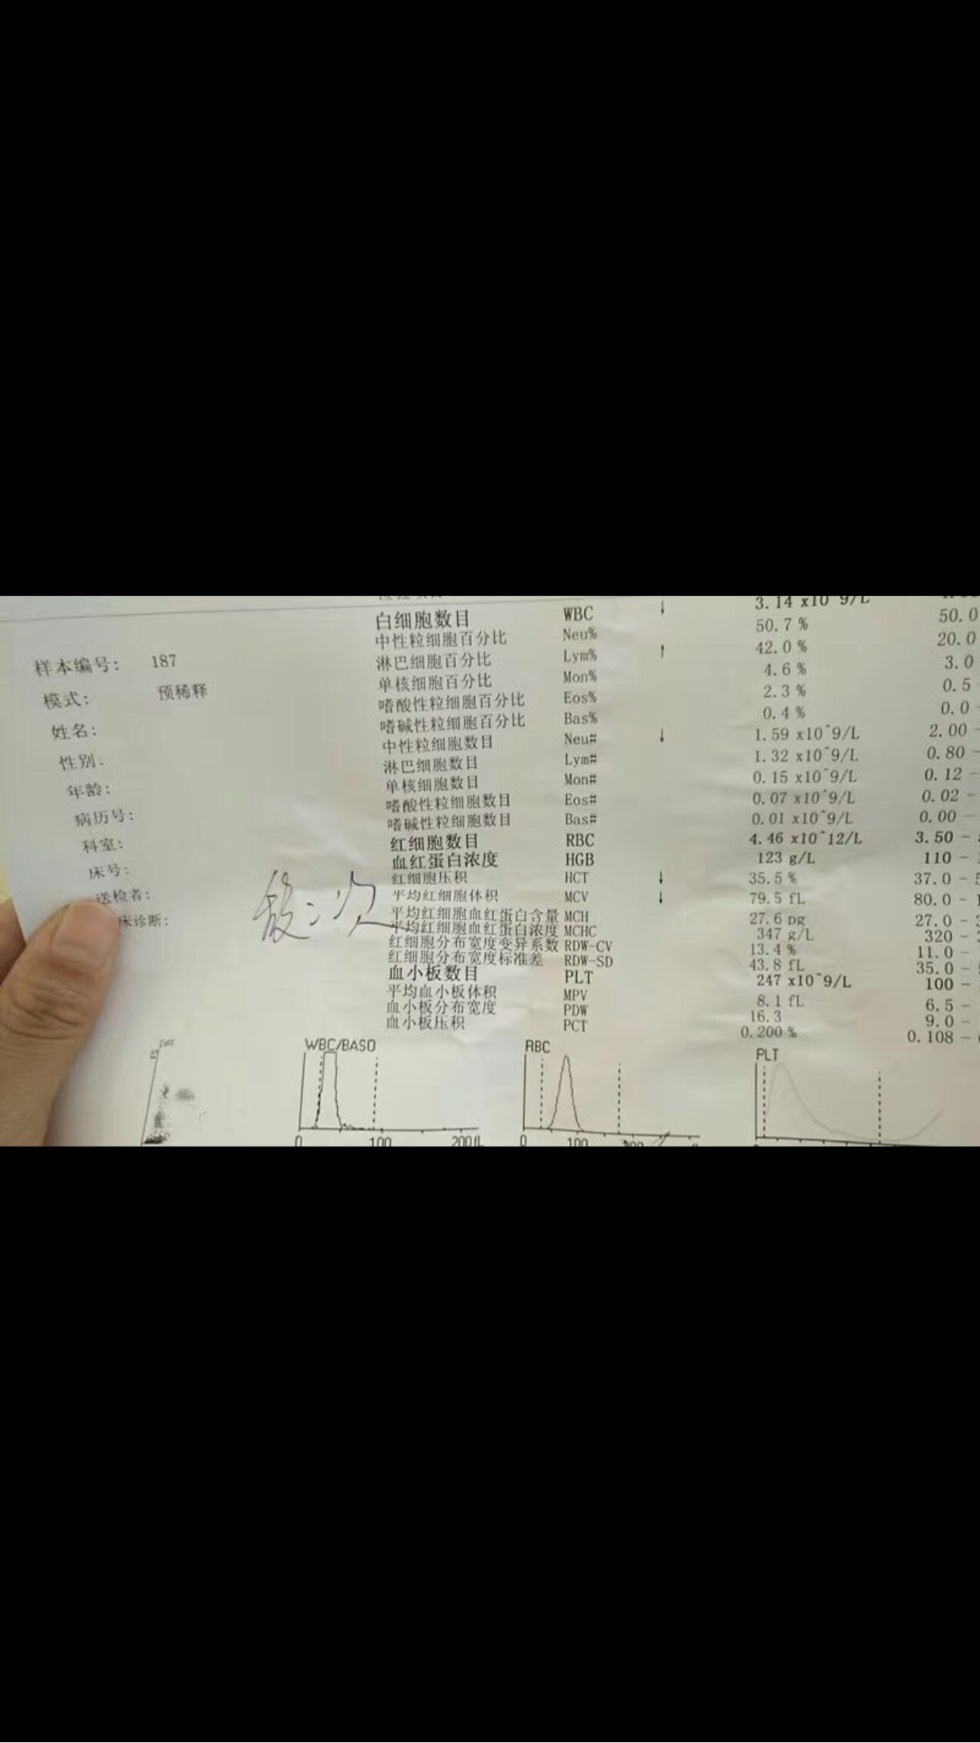 3.14 x10^9/L
白细胞数目 WBC ↓ 50.7 % 50.0
中性粒细胞百分比 Neu% 42.0 % 20.0
样本编号: 187 淋巴细胞百分比 Lym% ↑ 4.6 % 3.0
模式: 预稀释 单核细胞百分比 Mon% 2.3 % 0.5
嗜酸性粒细胞百分比 Eos% 0.4 % 0.0 -
姓名: 嗜碱性粒细胞百分比 Bas% 1.59 x10^9/L 2.00 -
性别: 中性粒细胞数目 Neu# ↓ 1.32 x10^9/L 0.80 -
淋巴细胞数目 Lym# 0.15 x10^9/L 0.12 -
年龄: 单核细胞数目 Mon# 0.07 x10^9/L 0.02 -
病历号: 嗜酸性粒细胞数目 Eos# 0.01 x10^9/L 0.00 -
嗜碱性粒细胞数目 Bas#
科室: 红细胞数目 RBC 4.46 x10^12/L 3.50 -
血红蛋白浓度 HGB 123 g/L 110 -
床号: 红细胞压积 HCT ↓ 35.5 % 37.0 -
送检者: 平均红细胞体积 MCV ↓ 79.5 fL 80.0 -
床诊断: 平均红细胞血红蛋白含量 MCH 27.6 pg 27.0 -
平均红细胞血红蛋白浓度 MCHC 347 g/L 320 -
红细胞分布宽度变异系数 RDW-CV 13.4 % 11.0 -
红细胞分布宽度标准差 RDW-SD 43.8 fL 35.0 -
血小板数目 PLT 247 x10^9/L 100 -
平均血小板体积 MPV 8.1 fL 6.5 -
血小板分布宽度 PDW 16.3 9.0 -
血小板压积 PCT 0.200 % 0.108 -
WBC/BASO RBC PLT
0 100 200 fL 0 100